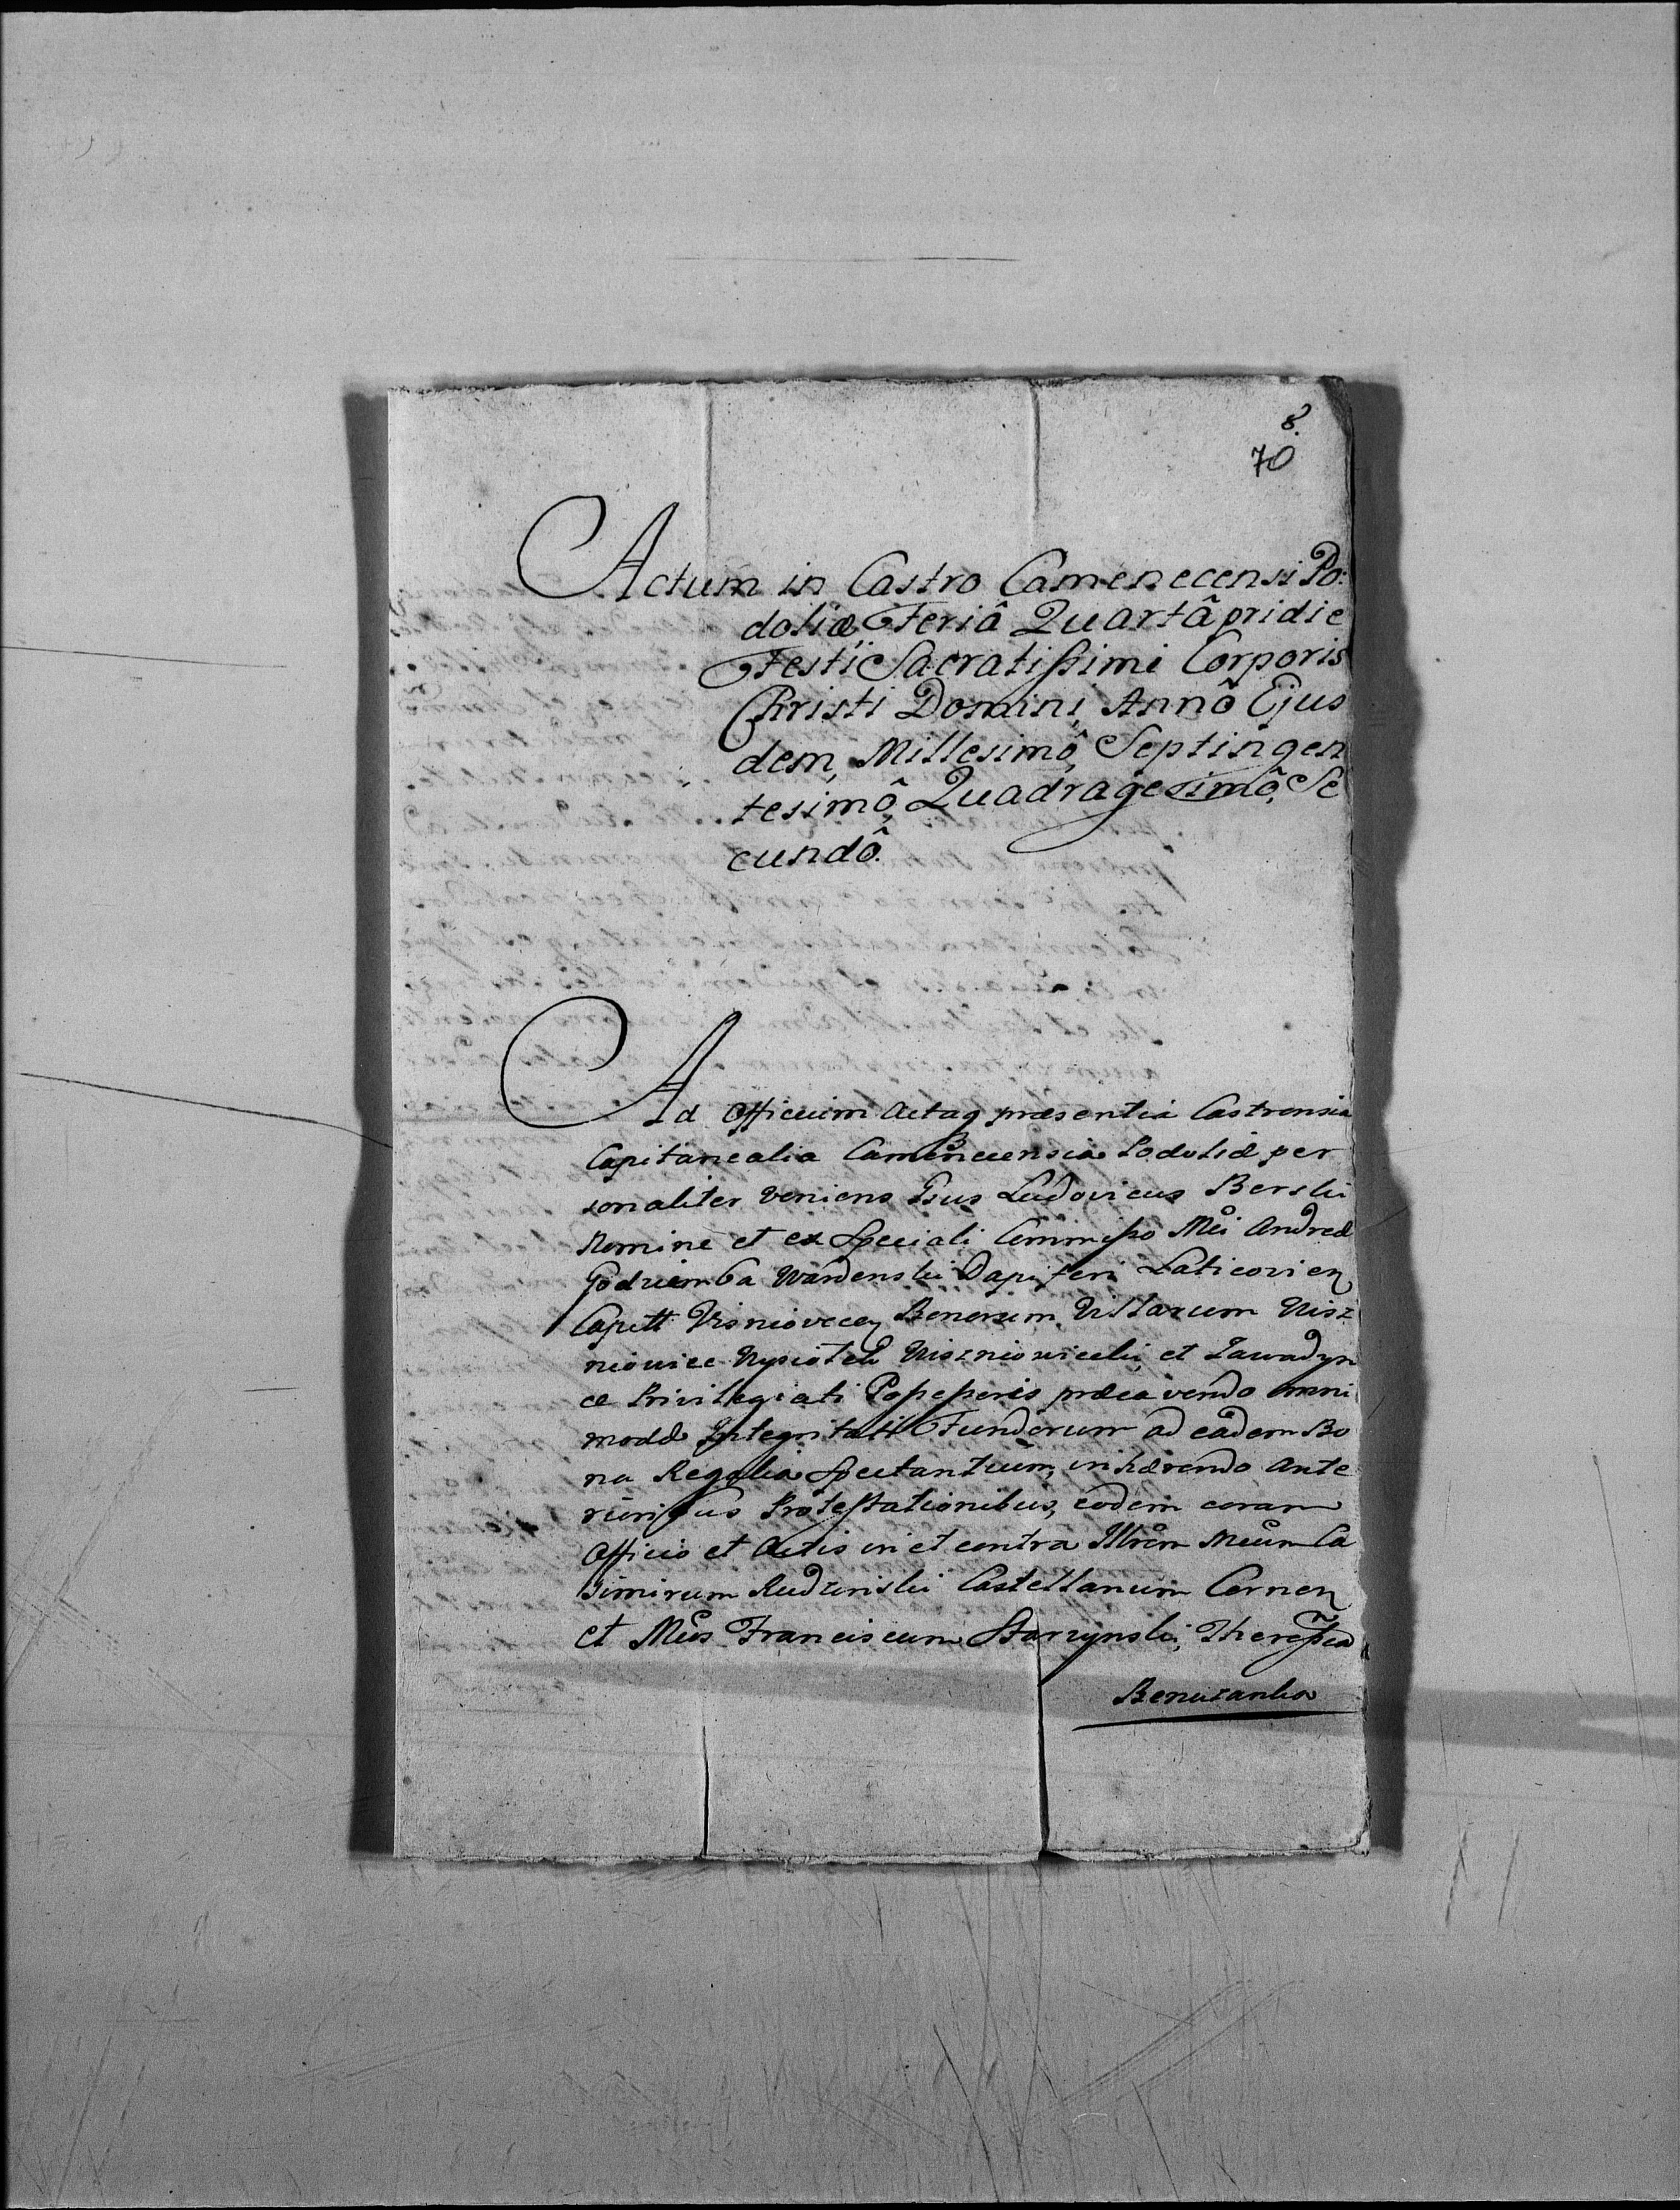 8.
70
Actum in Castro Camenecensi Po:
doliæ Feriâ Quartâ pridie
Festi Sacratissimi Corporis
Christi Domini, Annô Ejus
dem, Millesimô, Septingen
tesimô, Quadragesimô, Se
cundô.
Ad Officium Actaq præsentia Castrensia
Capitanealia Camenecensia Podoliæ per
sonaliter veniens Gsus Ludovicus Berski
Nomine et ex speciali Commisso Mei Andreæ
Godziemba Wardenski Dapiferi Laticovien
Capitt Visniovecen Bonorum Villarum Wisz
niowiec Wysiołek Wiszniowiecki et Zawadyn
ce Privilegiati Possessoris præcavendo omni
modæ Integritati Fundorum ad eadem Bo
na Regalia spectantium, inhærendo Ante
rioribus Protestationibus, eodem coram
Officio et Actis in et contra Illrem Meum Ca
simirum Rudzinski Castellanum Cernen
et Meos Franciscum Starzynski, Theressia
Benuzanka